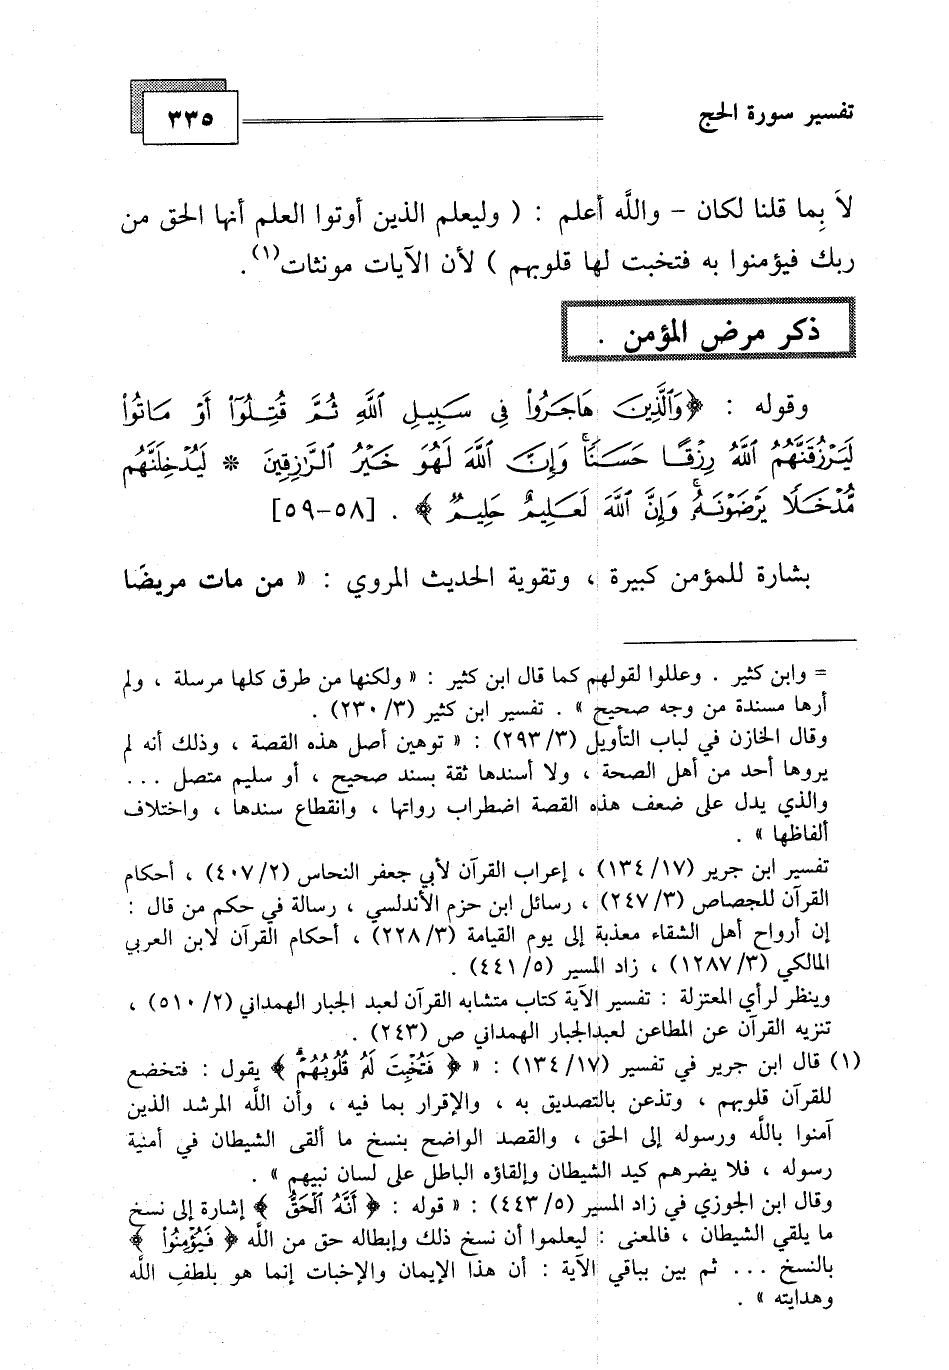 تفسير سورة الحج
٣٣٥
لاَ بِما قلنا لكان – واللَّه أعلم : ( وليعلم الذين أوتوا العلم أنها الحق من
ربك فيؤمنوا به فتخبت لها قلوبهم ) لأن الآيات مونثات(١) .
ذكر مرض المؤمن .
وقوله : ﴿وَٱلَّذِينَ هَاجَرُواْ فِى سَبِيلِ ٱللَّهِ ثُمَّ قُتِلُوٓاْ أَوْ مَاتُواْ
لَيَرْزُقَنَّهُمُ ٱللَّهُ رِزْقًا حَسَنًاۚ وَإِنَّ ٱللَّهَ لَهُوَ خَيْرُ ٱلرَّٰزِقِينَ * لَيُدْخِلَنَّهُم
مُّدْخَلًا يَرْضَوْنَهُۥۚ وَإِنَّ ٱللَّهَ لَعَلِيمٌ حَلِيمٌ﴾ . [٥٨–٥٩]
بشارة للمؤمن كبيرة ، وتقوية الحديث المروي : « من مات مريضًا
= وابن كثير . وعللوا لقولهم كما قال ابن كثير : « ولكنها من طرق كلها مرسلة ، ولم
أرها مسندة من وجه صحيح » . تفسير ابن كثير (٢٣٠/٣) .
وقال الخازن في لباب التأويل (٢٩٣/٣) : « توهين أصل هذه القصة ، وذلك أنه لم
يروها أحد من أهل الصحة ، ولا أسندها ثقة بسند صحيح ، أو سليم متصل ...
والذي يدل على ضعف هذه القصة اضطراب رواتها ، وانقطاع سندها ، واختلاف
ألفاظها » .
تفسير ابن جرير (١٣٤/١٧) ، إعراب القرآن لأبي جعفر النحاس (٤٠٧/٢) ، أحكام
القرآن للجصاص (٢٤٧/٣) ، رسائل ابن حزم الأندلسي ، رسالة في حكم من قال :
إن أرواح أهل الشقاء معذبة إلى يوم القيامة (٢٢٨/٣) ، أحكام القرآن لابن العربي
المالكي (١٢٨٧/٣) ، زاد المسير (٤٤١/٥) .
وينظر لرأي المعتزلة : تفسير الآية كتاب متشابه القرآن لعبد الجبار الهمداني (٥١٠/٢) ،
تنزيه القرآن عن المطاعن لعبدالجبار الهمداني ص (٢٤٣) .
(١) قال ابن جرير في تفسير (١٣٤/١٧) : « ﴿ فَتُخْبِتَ لَهُۥ قُلُوبُهُمْۗ ﴾ يقول : فتخضع
للقرآن قلوبهم ، وتذعن بالتصديق به ، والإقرار بما فيه ، وأن اللَّه المرشد الذين
آمنوا باللَّه ورسوله إلى الحق ، والقصد الواضح بنسخ ما ألقى الشيطان في أمنية
رسوله ، فلا يضرهم كيد الشيطان وإلقاؤه الباطل على لسان نبيهم » .
وقال ابن الجوزي في زاد المسير (٤٤٣/٥) : « قوله : ﴿ أَنَّهُ ٱلْحَقُّ ﴾ إشارة إلى نسخ
ما يلقي الشيطان ، فالمعنى : ليعلموا أن نسخ ذلك وإبطاله حق من اللَّه ﴿ فَيُؤْمِنُواْ ﴾
بالنسخ ... ثم بين بباقي الآية : أن هذا الإيمان والإخبات إنما هو بلطف اللَّه
وهدايته » .